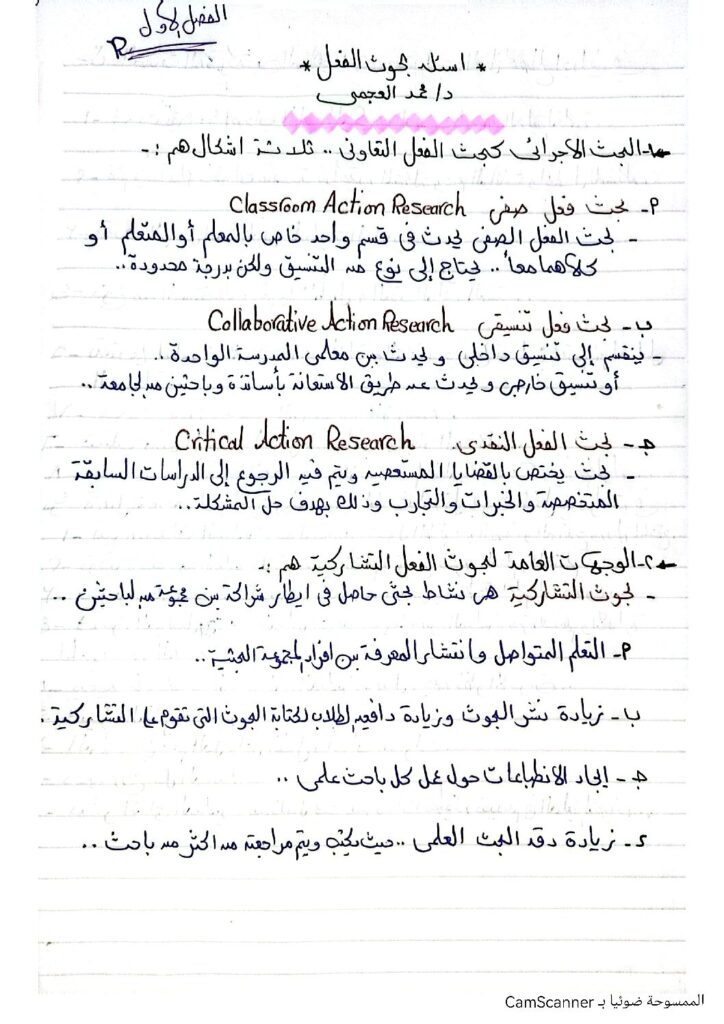 الفصل الأول
* اسئلة بحوث الفعل *
د/ محمد العجمى
١- البحث الاجرائى كبحث الفعل التعاونى .. ثلاثة اشكال هم :-
أ- بحث فعل صفى Classroom Action Research
- بحث الفعل الصفى يحدث فى قسم واحد خاص بالمعلم أو المتعلم أو
كلاهما معاً .. يحتاج إلى نوع من التنسيق ولكن بدرجة محدودة ..
ب- بحث فعل تنسيقى Collaborative Action Research
- ينقسم إلى تنسيق داخلى ويحدث بين معلمى المدرسة الواحدة ..
أو تنسيق خارجى ويحدث عن طريق الاستعانة بأساتذة وباحثين من الجامعة ..
جـ- بحث الفعل النقدى Critical Action Research
- بحث يختص بالقضايا المستعصيه ويتم فيه الرجوع إلى الدراسات السابقة
المتخصصة والخبرات والتجارب وذلك بهدف حل المشكلة ..
٢- الوجهات العامة للبحوث الفعل التشاركية هم :-
- بحوث التشاركية هى نشاط بحثى حاصل فى ايطار شراكة بين مجموعة من الباحثين ..
أ- التعلم المتواصل وانتشار المعرفة بين افراد المجموعة البحثية ..
ب- زيادة نشر البحوث وزيادة دافعيه الطلاب لكتابة البحوث التى تقوم على التشاركية .
جـ- ايجاد الانطباعات حول عمل كل باحث علمى ..
د- زيادة دقة البحث العلمى .. حيث يكتبه ويتم مراجعته من اكثر من باحث ..
الممسوحة ضوئيا بـ CamScanner